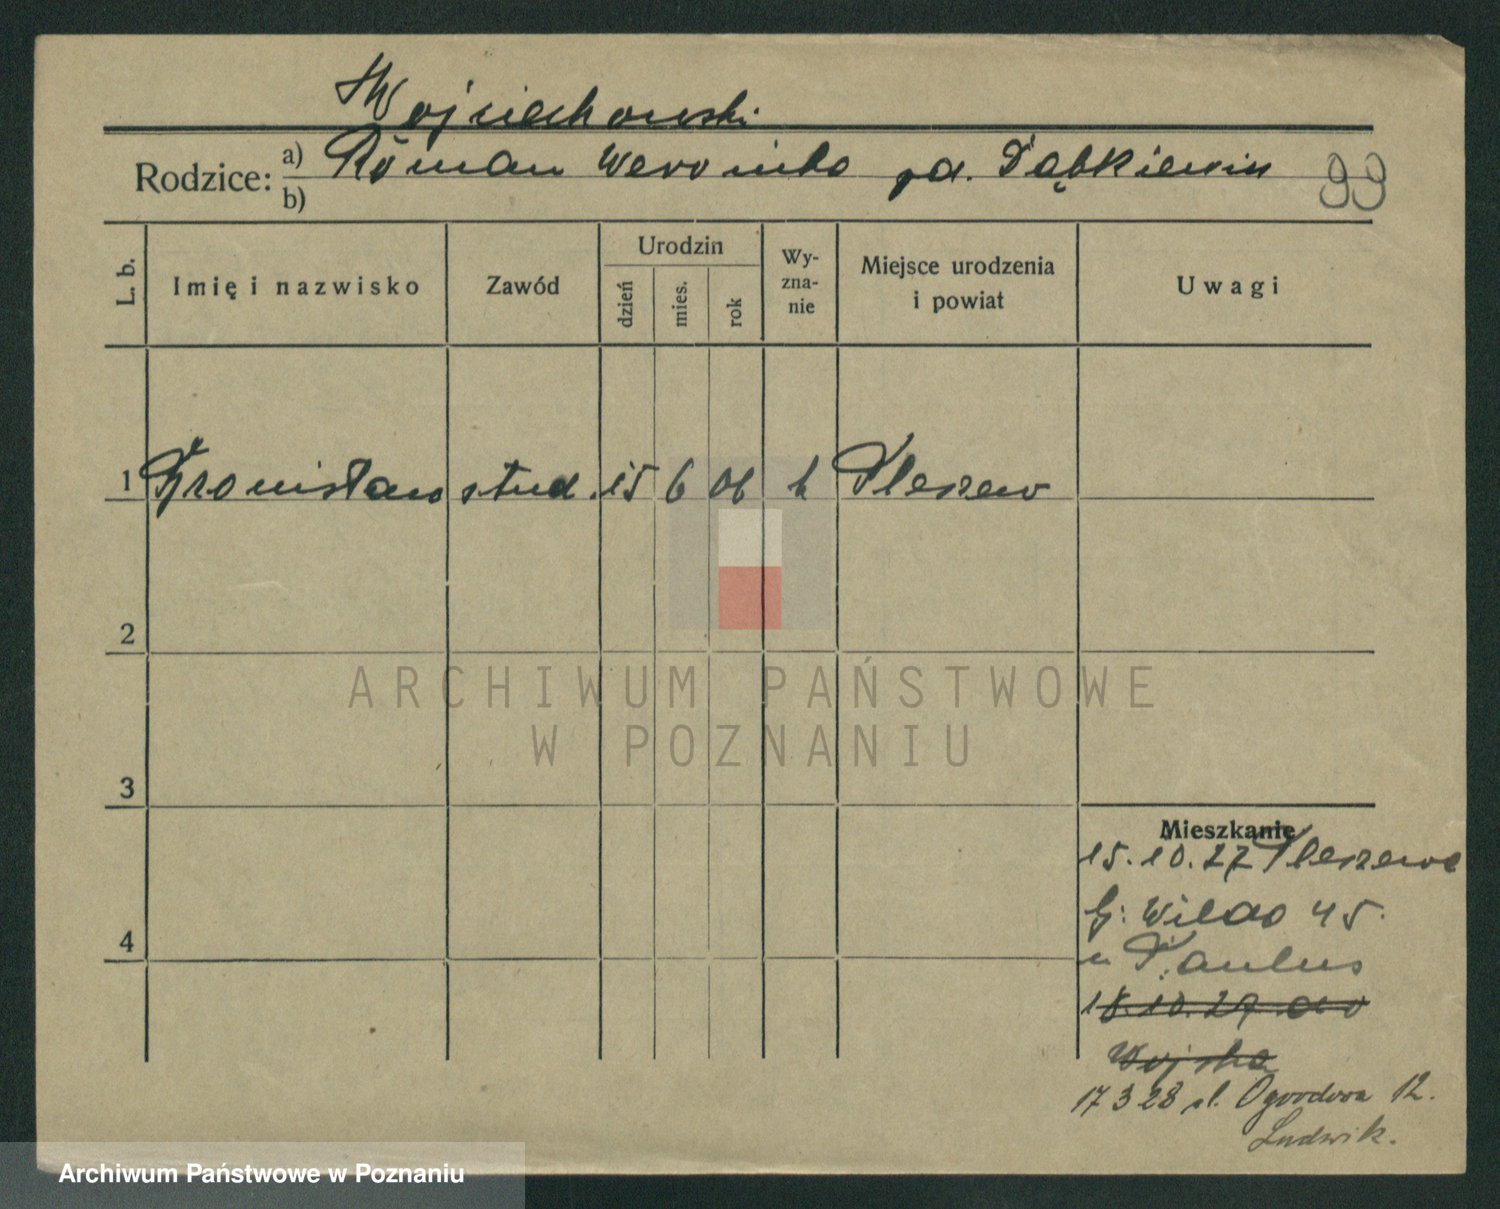 Wojciechowski
Rodzice: a) Roman Weronika
b)
99
L. b. Imię i nazwisko Zawód Urodzin dzień mies. rok Wyznanie Miejsce urodzenia i powiat Uwagi
1 Bronisław stud. 15 6 06 k Pleszew
2
3
4
Mieszkanie
15.10.27 Pleszewa
G. Wilda 45.
u Paulus
18.10.27 do
Wojska
17 3 28 ul. Ogrodowa 12.
Ludwik.
ARCHIWUM PAŃSTWOWE
W POZNANIU
Archiwum Państwowe w Poznaniu